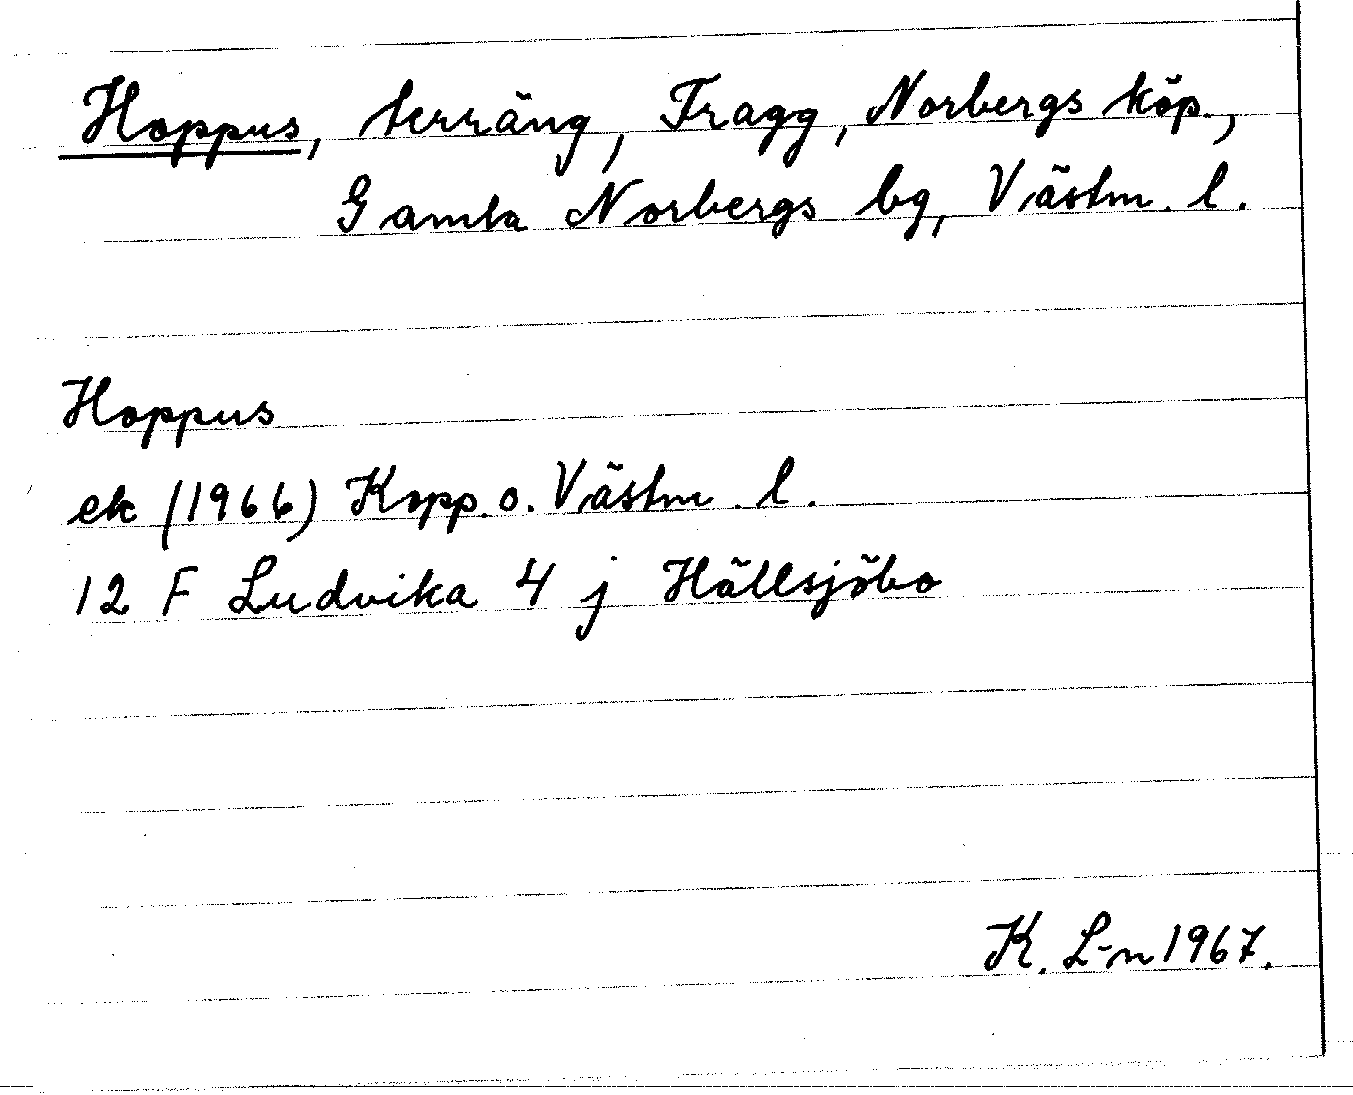 Hoppus, terräng, Fragg, Norbergs köp.,
Gamla Norbergs bg, Västm. l.
Hoppus
ek (1966) Kopp. o. Västm. l.
12 F Ludvika 4 j Hällsjöbo
K. L-n 1967.